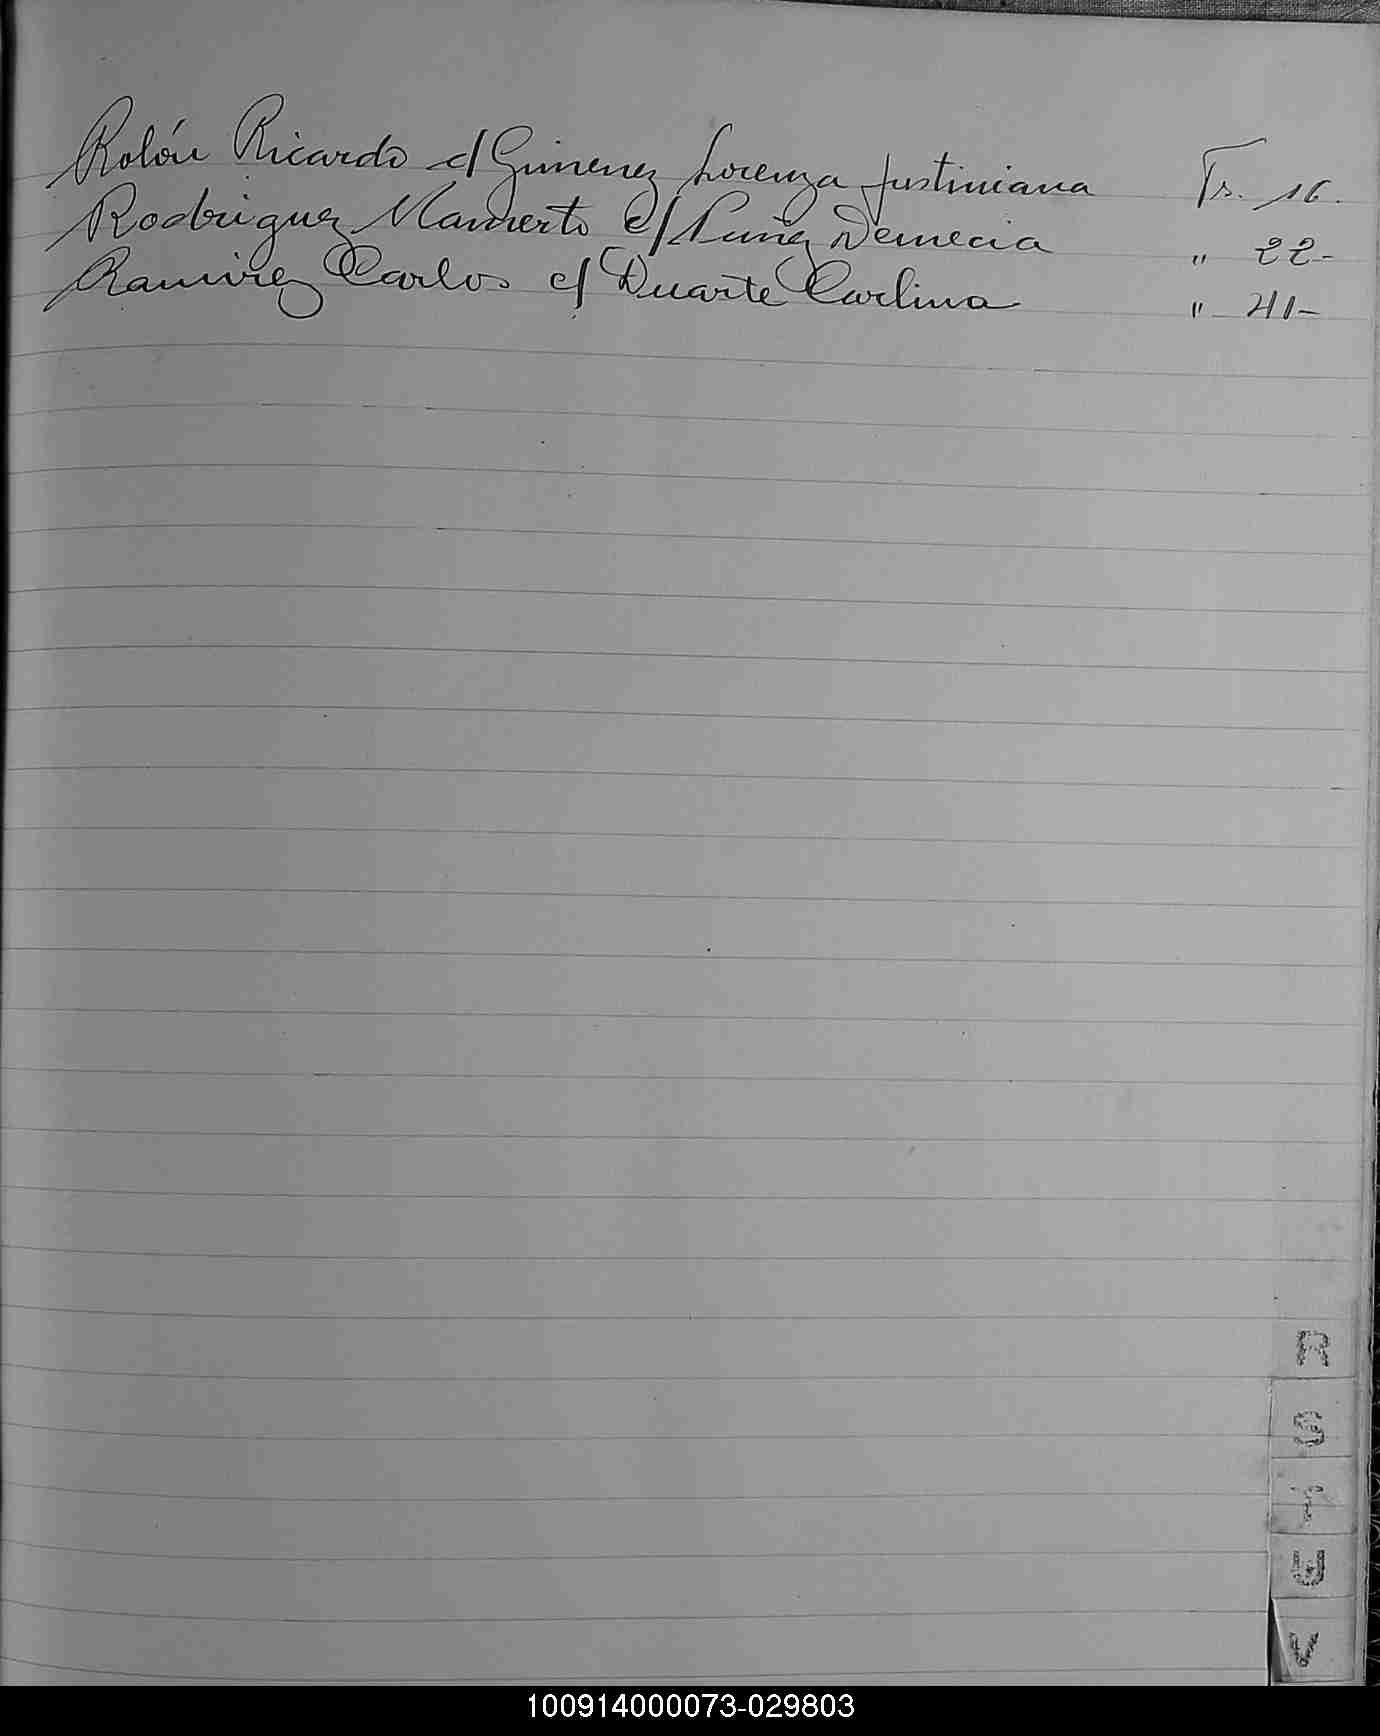 Rolón Ricardo c/ Gimenez Lorenza Justiniana Fs. 16.
Rodriguez Mamerto c/ Demecia " 22-
Ramirez Carlos c/ Duarte Carlina " 41-
R
S
T
U
V
100914000073-029803